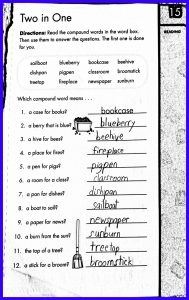 Two in One
15
READING
Directions: Read the compound words in the word box.
Then use them to answer the questions. The first one is done
for you.
sailboat blueberry bookcase beehive
dishpan pigpen classroom broomstick
treetop fireplace newspaper sunburn
Which compound word means . . .
1. a case for books? bookcase
2. a berry that is blue? blueberry
3. a hive for bees? beehive
4. a place for fires? fireplace
5. a pen for pigs? pigpen
6. a room for a class? classroom
7. a pan for dishes? dishpan
8. a boat to sail? sailboat
9. a paper for news? newspaper
10. a burn from the sun? sunburn
11. the top of a tree? treetop
12. a stick for a broom? broomstick